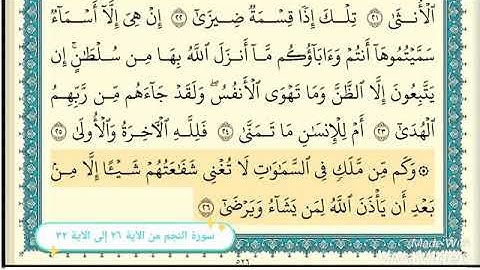 ٱلْأُنثَىٰ ٢١ تِلْكَ إِذًا قِسْمَةٌ ضِيزَىٰٓ ٢٢ إِنْ هِىَ إِلَّآ أَسْمَآءٌ
سَمَّيْتُمُوهَآ أَنتُمْ وَءَابَآؤُكُم مَّآ أَنزَلَ ٱللَّهُ بِهَا مِن سُلْطَٰنٍ ۚ إِن
يَتَّبِعُونَ إِلَّا ٱلظَّنَّ وَمَا تَهْوَى ٱلْأَنفُسُ ۖ وَلَقَدْ جَآءَهُم مِّن رَّبِّهِمُ
ٱلْهُدَىٰٓ ٢٣ أَمْ لِلْإِنسَٰنِ مَا تَمَنَّىٰ ٢٤ فَلِلَّهِ ٱلْءَاخِرَةُ وَٱلْأُولَىٰ ٢٥
۞ وَكَم مِّن مَّلَكٍ فِى ٱلسَّمَٰوَٰتِ لَا تُغْنِى شَفَٰعَتُهُمْ شَيْـًٔا إِلَّا مِنۢ
بَعْدِ أَن يَأْذَنَ ٱللَّهُ لِمَن يَشَآءُ وَيَرْضَىٰٓ ٢٦
سورة النجم من الآية ٢٦ إلى الآية ٣٢
Made With
٥٢٦